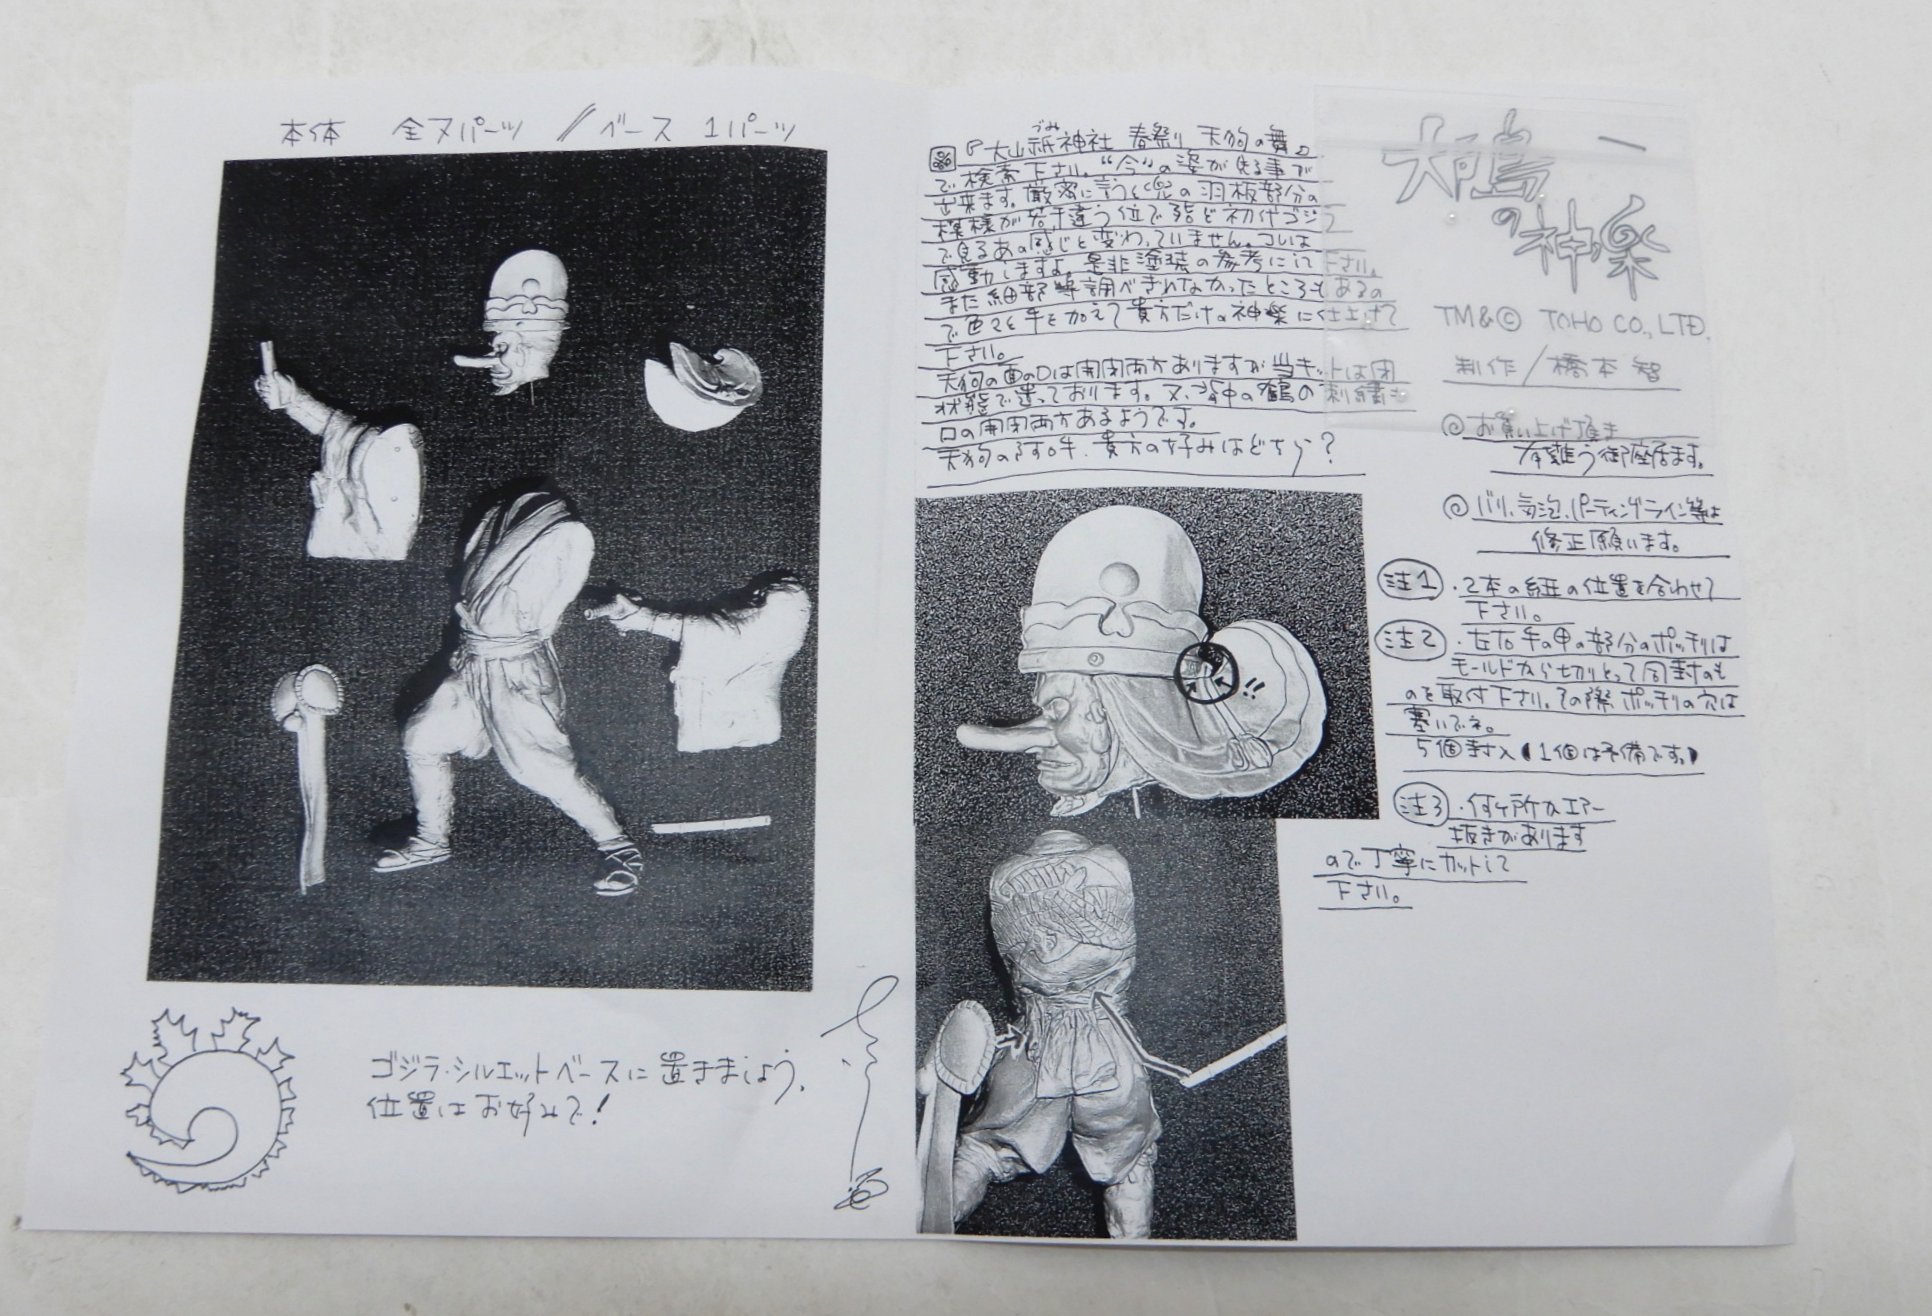 本体 全7パーツ // ベース 1パーツ
ゴジラ・シルエットベースに置きましょう。
位置はお好みで！
『大山祇神社 春祭り 天狗の舞』
づみ
で検索下さい。“今”の姿が見る事が
出来ます。厳密に言うと兜の羽板部分の
模様が若干違う位で殆ど初代ゴジ
で見るあの感じと変わっていません。コレは
感動しますよ。是非塗装の参考にして下さい。
また細部等調べきれなかったところもあるの
で色々と手を加えて貴方だけの神楽に仕上げて
下さい。
天狗の面の口は開閉両方ありますが当キットは閉
状態で造っております。又、背中の鶴の刺繍も
口の開閉両方あるようです。
天狗の阿吽、貴方の好みはどちら？
大戸島
の神楽
TM&© TOHO CO., LTD.
制作/橋本智
◎お買い上げ頂き
有難う御座居ます。
◎バリ、気泡、パーティングライン等は
修正願います。
注1・2本の紐の位置を合わせて
下さい。
注2・左右手の甲の部分のポッチリは
モールドから切りとって同封のも
のを取付下さい。その際ポッチリの穴は
塞いでネ。
5個封入(1個は予備です。)
注3・何ヶ所かエアー
抜きがあります
ので丁寧にカットして
下さい。
!!